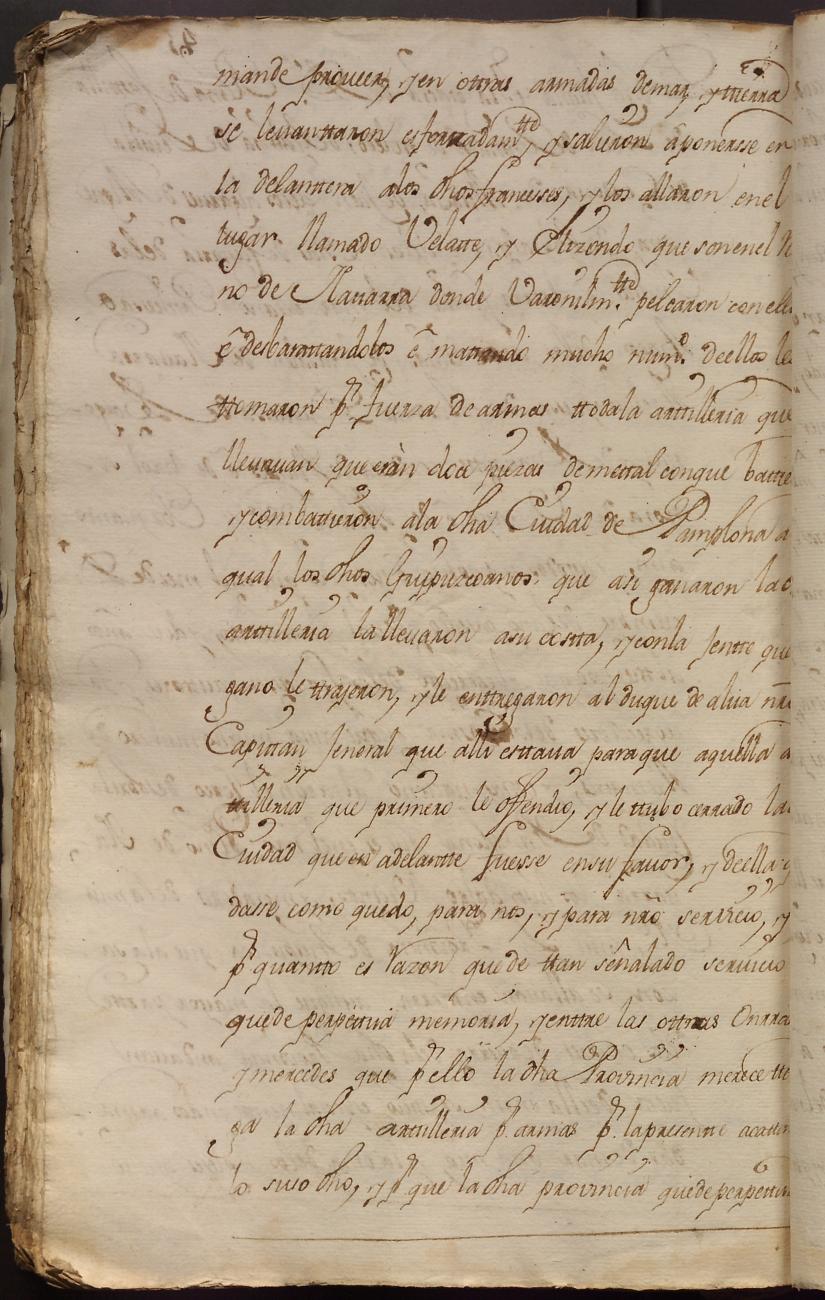 mande proveer, y en ottras armadas de mar, y ttierra
se levanttaron esforzadam.tte, y salieron a ponersse en
la delanttera a los dhos franceses, y los allaron en el
lugar llamado Velatte, y Elizondo que son en el R
no de Navarra donde Varonilm.tte pelearon con ell
é desbarattandolos é mattando mucho num.o de ellos le
ttomaron p.r fuerza de armas ttoda la arttilleria que
llevavan que eran doce piezas de mettal con que battie
y combattieron a la dha Ciudad de Pamplona a
qual los dhos Guipuzcoanos que asi ganaron la d
arttilleria la llevaron a su costta, y con la Jentte que
gano le ttrajeron, y le enttregaron al duque de alva nro
Capittan Jeneral que alli esttava para que aquella a
ttilleria que primero le ofendio, y le ttubo cerrado la
Ciudad que en adelantte fuesse en su favor, y de ella q
dasse como quedo, para nos, y para nro servicio, y
p.r quantto es Razon que de ttan señalado servicio
quede perpettua memoria, y enttre las ottras Onrra
y mercedes que p.r ello la dha Provincia merece tte
ga la dha artilleria p.r armas p.r la presentte acattan
lo suso dho, y p.r que la dha provincia quede perpettua